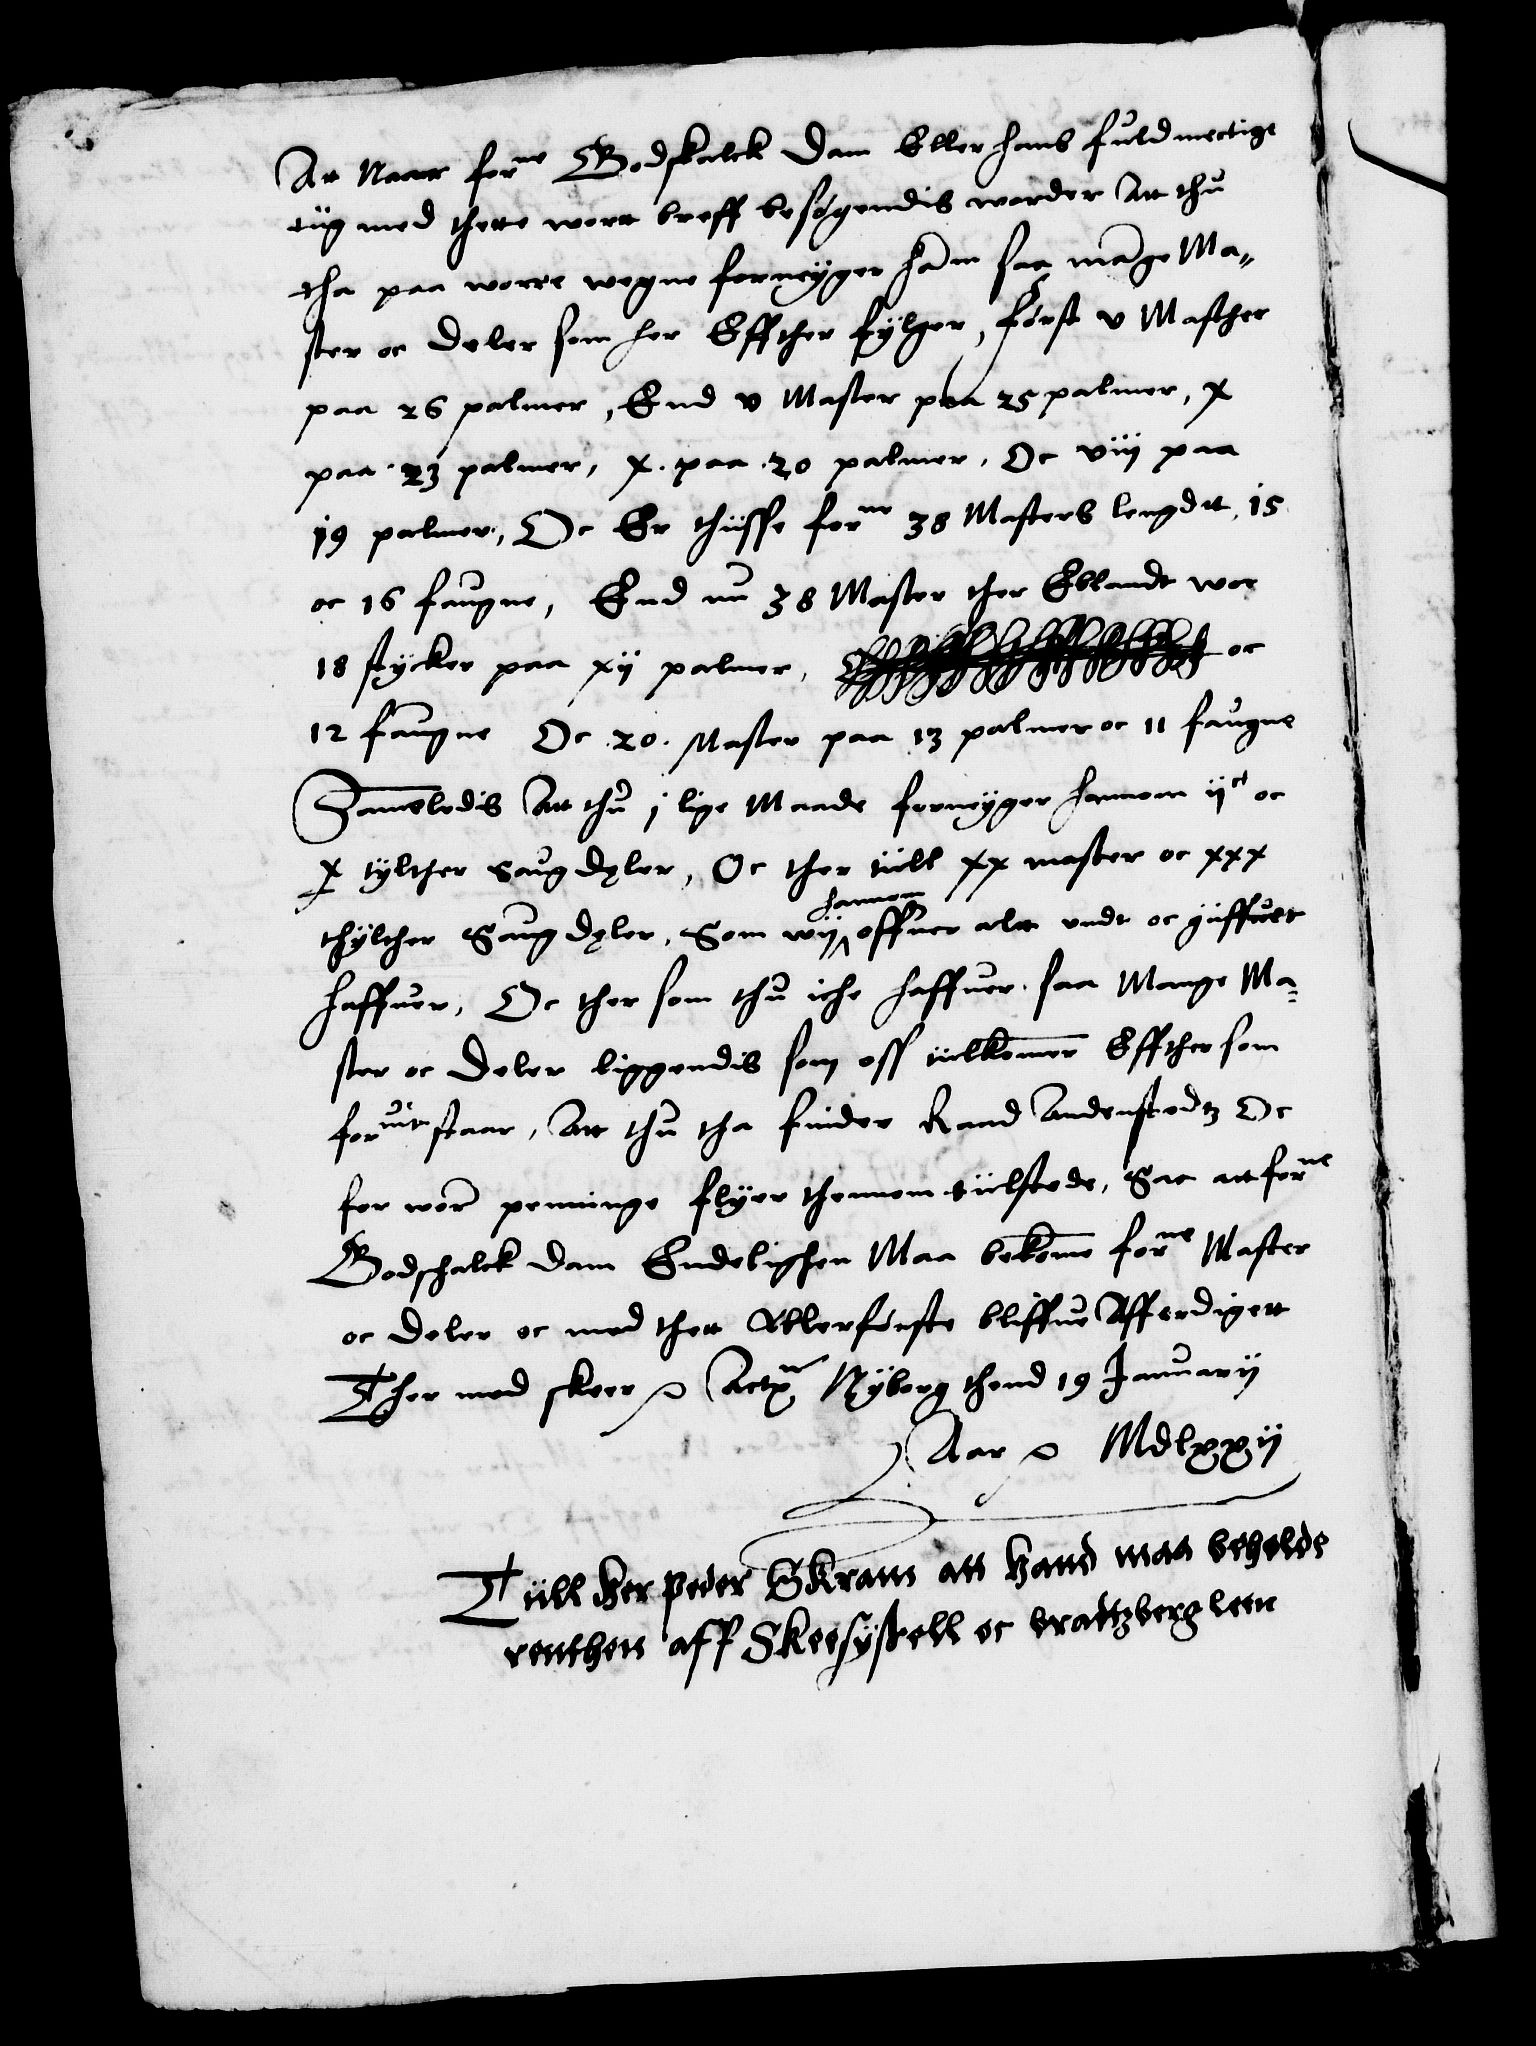 At Naar for^ne Godskalck Dam Eller hans fuldmectige
tiig med thette wortt breff besøgendis worder Att thu
tha paa worre wegne fornyger ham saa mange Ma„
ster oc Deler som her Effther fylger, først v Masther
paa 26 palmer, End v Master paa 25 palmer, x
paa 23 palmer, x. paa .20 palmer. Oc viij paa
19 palmer, Oc Er thiisse for^ne 38 Masters lengdtt, 15
oc 16 faugne, End nu 38 Master ther Eblandt wor
18 stycker paa xij palmer, oc
12 faugne Oc .20. Master paa 13 palmer oc 11 faugne
Sameledis Att thu j lige Maade fornyger hannom ij^c oc
x tylther Saugdeler, Oc ther tiill xx master oc xxx
thylther Saugdeler, Som wij hannom offuer alt undt oc giiffuet
haffuer, Oc ther som thu iche haffuer saa Mange Ma=
ster oc Deler liggendis som oss tiilkomer Effther som
for^uit staar, Att thu tha finder Raad Andenstedtz Oc
for wore penninge flyer thennom tiilstede, Saa att for^ne
Godschalck Dam Endelighen Maa bekome for^ne Master
oc Deler oc med thett Allerførste bliffue Afferdigett
Ther med skeer Actum Nyborg thend 19 Januarij
Aar Mdlxxij
Tiill Her Peder Skram att hand maa beholde
renthen aff Skeesyssell oc brattzberg leen